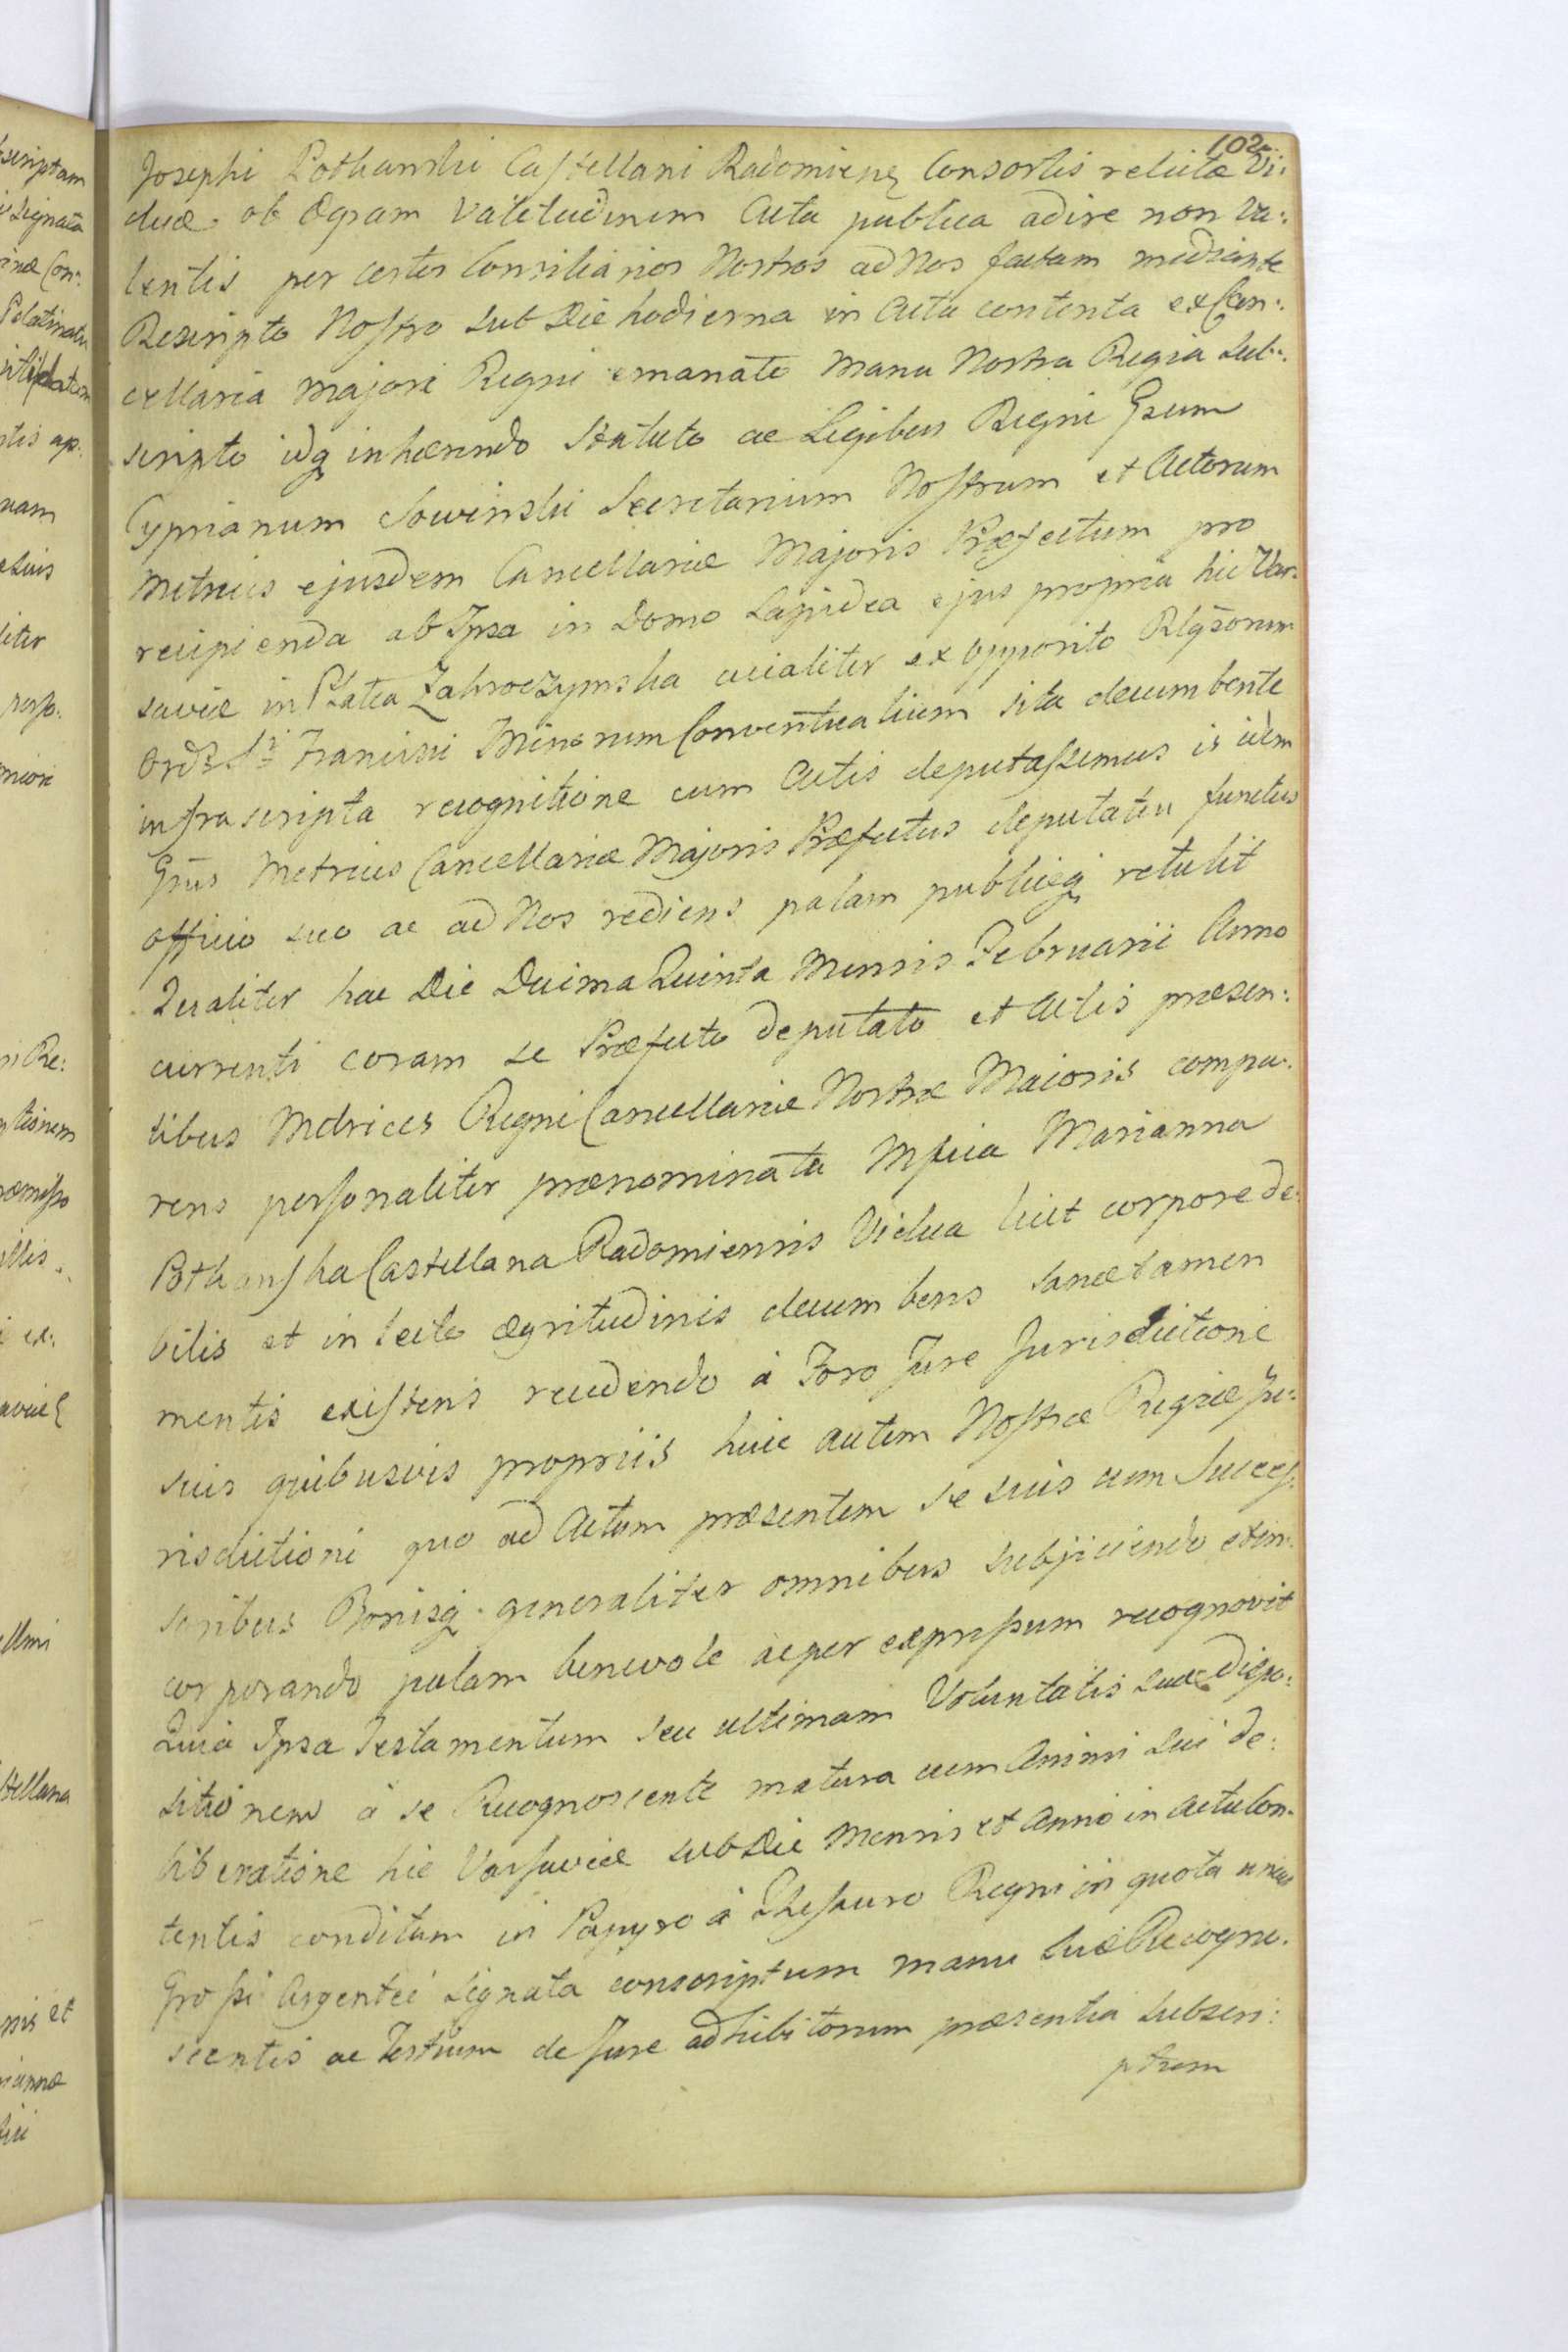 102
Josephi Pothanski Castellani Radomiens Consortis relictæ Vi:
duæ ob Ægram Valetudinem Acta publica adire non va:
lentis per certos Consiliarios Nostros ad Nos factam mediante
Rescripto Nostro sub Die hodierna in Acta contenta ex Can:
cellaria majori Regni emanato manu Nostra Regia sub:
scripto idq inhærendo Statuto ac Legibus Regni Gsum
Cyprianum Sowinski Secretarium Nostrum et Actorum
Metrices ejusdem Cancellariæ Majoris Præfectum pro
recipienda ab Ipsa in Domo Lapidea ejus propria hic Var:
saviæ in Platea Zakroczymska acialiter ex opposito Rlgsorum
Ordis Sti Francisci Minorum Conventualium sita decumbente
infrascripta recognitione cum Actis deputassemus is idem
Gsus Metrices Cancellariæ Majoris Præfectus deputatus functus
officio suo ac ad Nos rediens palam publiceq retulit
Qualiter hac Die Decima Quinta Mensis Februarii Anno
currenti coram se Præfecto deputato et Actis præsen:
tibus Metrices Regni Cancellariæ Nostræ Maioris compa:
rens personaliter prænominata Mfica Marianna
Pothanska Castellana Radomiensis Vidua licet corpore de:
bilis et in lecto ægritudinis decumbens sanæ tamen
mentis existens recedendo à Foro Jure Jurisdictione
suis quibusvis propriis huic autem Nostræ Regiæ Ju:
risdictioni quo ad Actum præsentem se suis cum Succes:
soribus Bonisq generaliter omnibus subjiciendo et in:
corporando palam benevole ac per expressum recognovit
Quia Ipsa Testamentum seu ultimam Voluntatis suæ dispo:
sitionem à se Recognoscente matura cum Animi sui de:
liberatione hic Varsaviæ sub Die Mensis et Anno in Actu Con:
tentis conditam in Papyro à Thesauro Regni in quota unius
Grossi Argentei signata conscriptum manu suæ Recogno:
scentis ac Testium de Jure adhibitorum præsentia subscri:
ptum